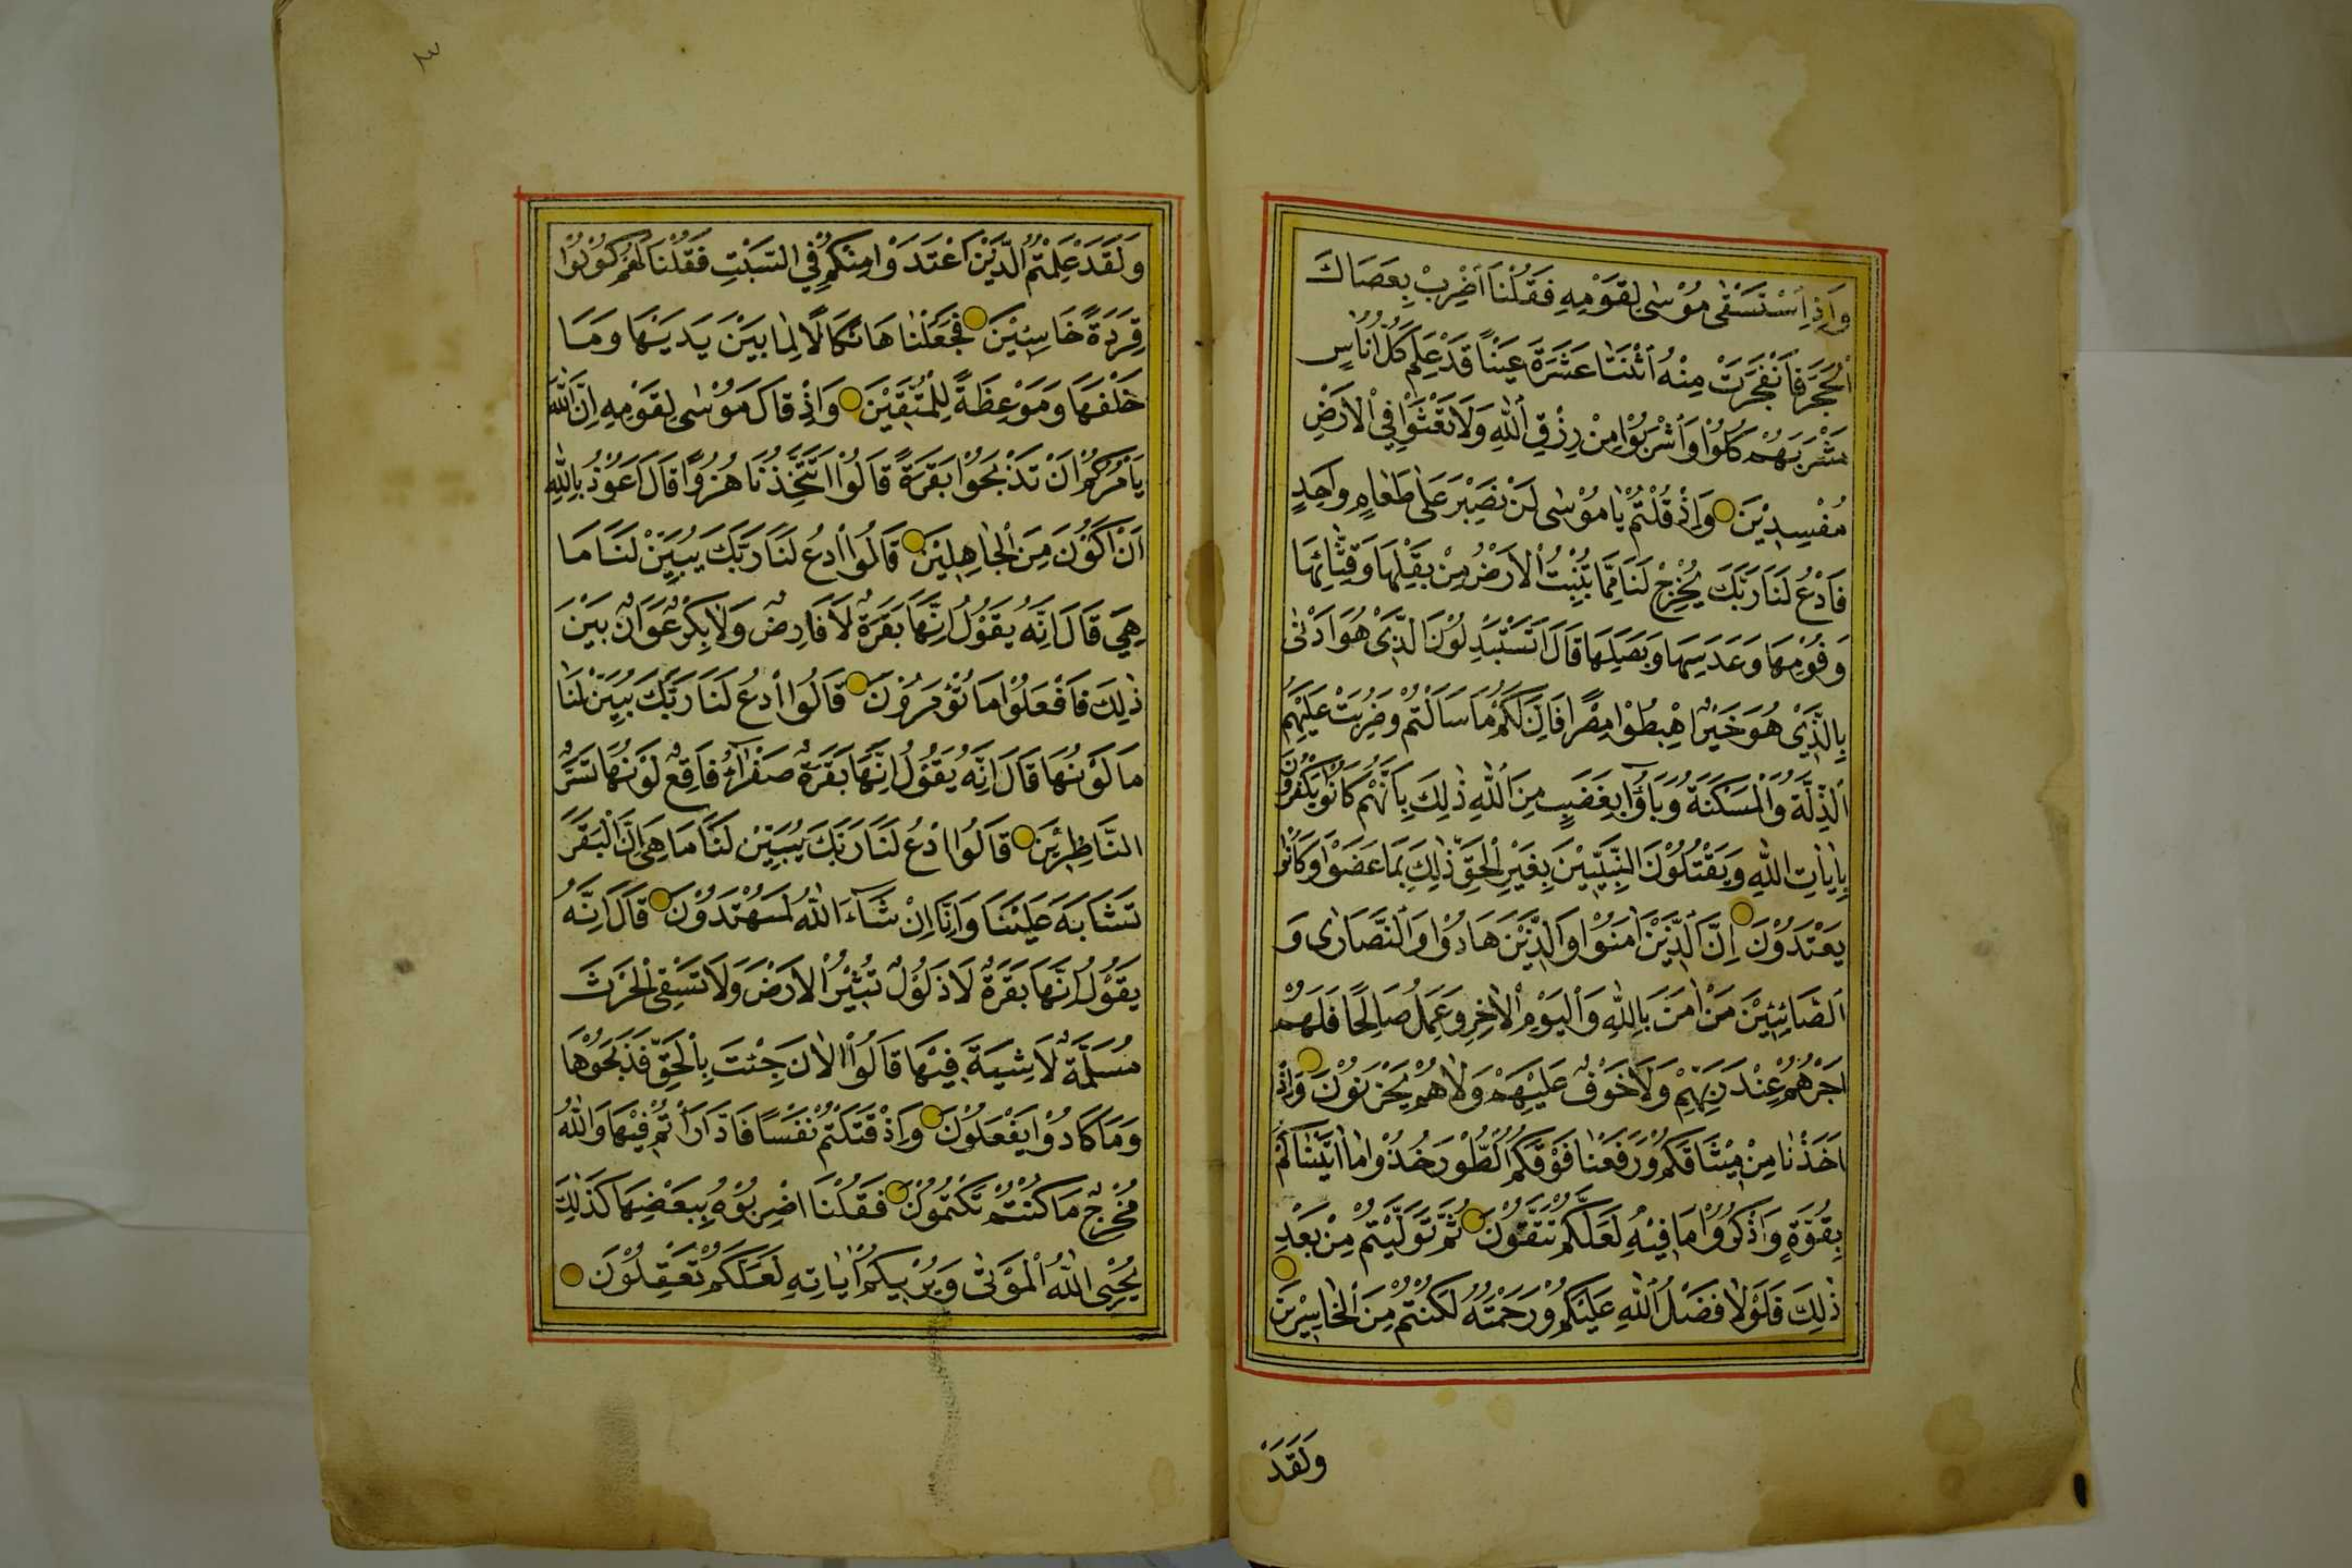 وَاِذِ اسْتَسْقٰى مُوْسٰى لِقَوْمِهِ فَقُلْنَا اضْرِبْ بِعَصَاكَ
الْحَجَرَ فَانْفَجَرَتْ مِنْهُ اثْنَتَا عَشَرَةَ عَيْنًا قَدْ عَلِمَ كُلُّ اُنَاسٍ
مَشْرَبَهُمْ كُلُوْا وَاشْرَبُوْا مِنْ رِزْقِ اللّٰهِ وَلَا تَعْثَوْا فِي الْاَرْضِ
مُفْسِدِيْنَ وَاِذْ قُلْتُمْ يَا مُوْسٰى لَنْ نَصْبِرَ عَلٰى طَعَامٍ وَاحِدٍ
فَادْعُ لَنَا رَبَّكَ يُخْرِجْ لَنَا مِمَّا تُنْبِتُ الْاَرْضُ مِنْ بَقْلِهَا وَقِثَّائِهَا
وَفُوْمِهَا وَعَدَسِهَا وَبَصَلِهَا قَالَ اَتَسْتَبْدِلُوْنَ الَّذِيْ هُوَ اَدْنٰى
بِالَّذِيْ هُوَ خَيْرٌ اِهْبِطُوْا مِصْرًا فَاِنَّ لَكُمْ مَا سَاَلْتُمْ وَضُرِبَتْ عَلَيْهِمُ
الذِّلَّةُ وَالْمَسْكَنَةُ وَبَاؤُا بِغَضَبٍ مِنَ اللّٰهِ ذٰلِكَ بِاَنَّهُمْ كَانُوْا يَكْفُرُوْنَ
بِاٰيَاتِ اللّٰهِ وَيَقْتُلُوْنَ النَّبِيّٖيْنَ بِغَيْرِ الْحَقِّ ذٰلِكَ بِمَا عَصَوْا وَكَانُوْا
يَعْتَدُوْنَ اِنَّ الَّذِيْنَ اٰمَنُوْا وَالَّذِيْنَ هَادُوْا وَالنَّصَارٰى وَ
الصَّابِئِيْنَ مَنْ اٰمَنَ بِاللّٰهِ وَالْيَوْمِ الْاٰخِرِ وَعَمِلَ صَالِحًا فَلَهُمْ
اَجْرُهُمْ عِنْدَ رَبِّهِمْ وَلَا خَوْفٌ عَلَيْهِمْ وَلَا هُمْ يَحْزَنُوْنَ وَاِذْ
اَخَذْنَا مِنْ مِيْثَاقَكُمْ وَرَفَعْنَا فَوْقَكُمُ الطُّوْرَ خُذُوْا مَا اٰتَيْنَاكُمْ
بِقُوَّةٍ وَاذْكُرُوْا مَا فِيْهِ لَعَلَّكُمْ تَتَّقُوْنَ ثُمَّ تَوَلَّيْتُمْ مِنْ بَعْدِ
ذٰلِكَ فَلَوْلَا فَضْلُ اللّٰهِ عَلَيْكُمْ وَرَحْمَتُهُ لَكُنْتُمْ مِنَ الْخَاسِرِيْنَ
وَلَقَدْ
وَلَقَدْ عَلِمْتُمُ الَّذِيْنَ اعْتَدَوْا مِنْكُمْ فِي السَّبْتِ فَقُلْنَا لَهُمْ كُوْنُوْا
قِرَدَةً خَاسِئِيْنَ فَجَعَلْنَاهَا نَكَالًا لِمَا بَيْنَ يَدَيْهَا وَمَا
خَلْفَهَا وَمَوْعِظَةً لِلْمُتَّقِيْنَ وَاِذْ قَالَ مُوْسٰى لِقَوْمِهِ اِنَّ اللّٰهَ
يَاْمُرُكُمْ اَنْ تَذْبَحُوْا بَقَرَةً قَالُوْا اَتَتَّخِذُنَا هُزُوًا قَالَ اَعُوْذُ بِاللّٰهِ
اَنْ اَكُوْنَ مِنَ الْجَاهِلِيْنَ قَالُوا ادْعُ لَنَا رَبَّكَ يُبَيِّنْ لَنَا مَا
هِيَ قَالَ اِنَّهُ يَقُوْلُ اِنَّهَا بَقَرَةٌ لَا فَارِضٌ وَلَا بِكْرٌ عَوَانٌ بَيْنَ
ذٰلِكَ فَافْعَلُوْا مَا تُؤْمَرُوْنَ قَالُوا ادْعُ لَنَا رَبَّكَ يُبَيِّنْ لَنَا
مَا لَوْنُهَا قَالَ اِنَّهُ يَقُوْلُ اِنَّهَا بَقَرَةٌ صَفْرَاۤءُ فَاقِعٌ لَوْنُهَا تَسُرُّ
النَّاظِرِيْنَ قَالُوا ادْعُ لَنَا رَبَّكَ يُبَيِّنْ لَنَا مَا هِيَ اِنَّ الْبَقَرَ
تَشَابَهَ عَلَيْنَا وَاِنَّا اِنْ شَاۤءَ اللّٰهُ لَمُهْتَدُوْنَ قَالَ اِنَّهُ
يَقُوْلُ اِنَّهَا بَقَرَةٌ لَا ذَلُوْلٌ تُثِيْرُ الْاَرْضَ وَلَا تَسْقِي الْحَرْثَ
مُسَلَّمَةٌ لَا شِيَةَ فِيْهَا قَالُوْا الْاٰنَ جِئْتَ بِالْحَقِّ فَذَبَحُوْهَا
وَمَا كَادُوْا يَفْعَلُوْنَ وَاِذْ قَتَلْتُمْ نَفْسًا فَادَّارَاْتُمْ فِيْهَا وَاللّٰهُ
مُخْرِجٌ مَا كُنْتُمْ تَكْتُمُوْنَ فَقُلْنَا اضْرِبُوْهُ بِبَعْضِهَا كَذٰلِكَ
يُحْيِى اللّٰهُ الْمَوْتٰى وَيُرِيْكُمْ اٰيَاتِهِ لَعَلَّكُمْ تَعْقِلُوْنَ